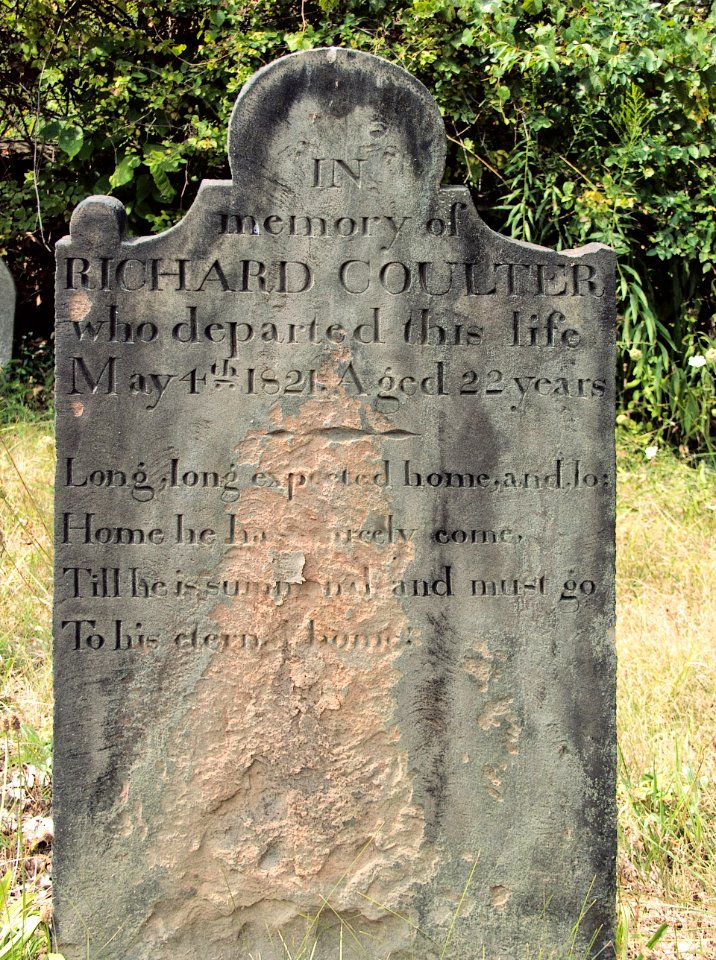 IN
memory of
RICHARD COULTER
who departed this life
May 4th 1821. Aged 22 years
Long, long expected home, and lo;
Home he has come,
Till he is and must go
To his eternal home.